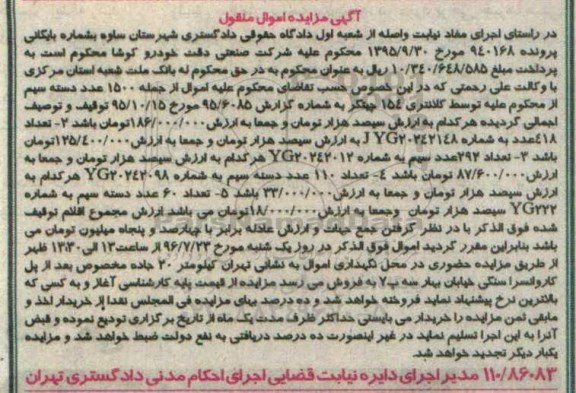 آگهی مزایده اموال منقول
در راستای اجرای مفاد نیابت واصله از شعبه اول دادگاه حقوقی دادگستری شهرستان ساوه بشماره بایگانی
پرونده ۹۴۰۱۶۸ مورخ ۱۳۹۵/۹/۳۰ محکوم علیه شرکت صنعتی دقت خودرو کوشا محکوم است به
پرداخت مبلغ ۱۰/۳۴۰/۶۴۸/۵۸۵ ریال به عنوان محکوم به در حق محکوم له بانک ملت شعبه استان مرکزی
با وکالت علی رحمتی که در این خصوص حسب تقاضای محکوم علیه اموال از جمله ۱۵۰۰ عدد دسته سیم
از محکوم علیه توسط کلانتری ۱۵۴ چیتگر به شماره گزارش ۹۵/۶۰۸۵ مورخ ۹۵/۱۰/۱۵ توقیف و توصیف
اجمالی گردیده هرکدام به ارزش سیصد هزار تومان و جمعا به ارزش ۱۸۶/۰۰۰/۰۰۰تومان باشد ۲- تعداد
۴۱۸عدد به شماره J YG۲۰۲۴۲۱۴۸ به ارزش سیصد هزار تومان و جمعا به ارزش ۱۲۵/۴۰۰/۰۰۰تومان
باشد ۳- تعداد ۲۹۲عدد سیم به شماره YG۲۰۲۴۲۰۱۲ هرکدام به ارزش سیصد هزار تومان و جمعا به
ارزش ۸۷/۶۰۰/۰۰۰ تومان باشد ۴- تعداد ۱۱۰ عدد دسته سیم به شماره YG۲۰۲۴۲۰۹۸ هرکدام به
ارزش سیصد هزار تومان و جمعا به ارزش ۳۳/۰۰۰/۰۰۰ باشد ۵- تعداد ۶۰ عدد دسته سیم به شماره
YG۲۲۲ سیصد هزار تومان وجمعا به ارزش ۱۸/۰۰۰/۰۰۰تومان می باشد ارزش مجموع اقلام توقیف
شده فوق الذکر با در نظر گرفتن جمع جهات و ارزش عادله برابر با چهارصد و پنجاه میلیون تومان می
باشد بنابراین مقرر گردید اموال فوق الذکر در روز یک شنبه مورخ ۹۶/۷/۲۳ از ساعت۱۲ الی ۱۳:۳۰ ظهر
از طریق مزایده حضوری در محل نگهداری اموال به نشانی تهران کیلومتر ۲۰ جاده مخصوص بعد از پل
کاروانسرا سنگی خیابان بهار سه پ۷ به فروش می رسد مزایده از قیمت پایه کارشناسی آغاز و به کسی که
بالاترین نرخ پیشنهاد نماید فروخته خواهد شد و ده درصد بهای مزایده فی المجلس نقدا از خریدار اخذ و
مابقی ثمن مزایده را خریدار می بایستی حداکثر ظرف مدت یک ماه از تاریخ برگزاری تودیع نموده و قبض
آنرا به این اجرا تسلیم نماید در غیر اینصورت ده درصد دریافتی به نفع دولت ضبط خواهد شد و مزایده
یکبار دیگر تجدید خواهد شد.
۱۱۰/۸۶۰۸۳ مدیر اجرای دایره نیابت قضایی اجرای احکام مدنی دادگستری تهران